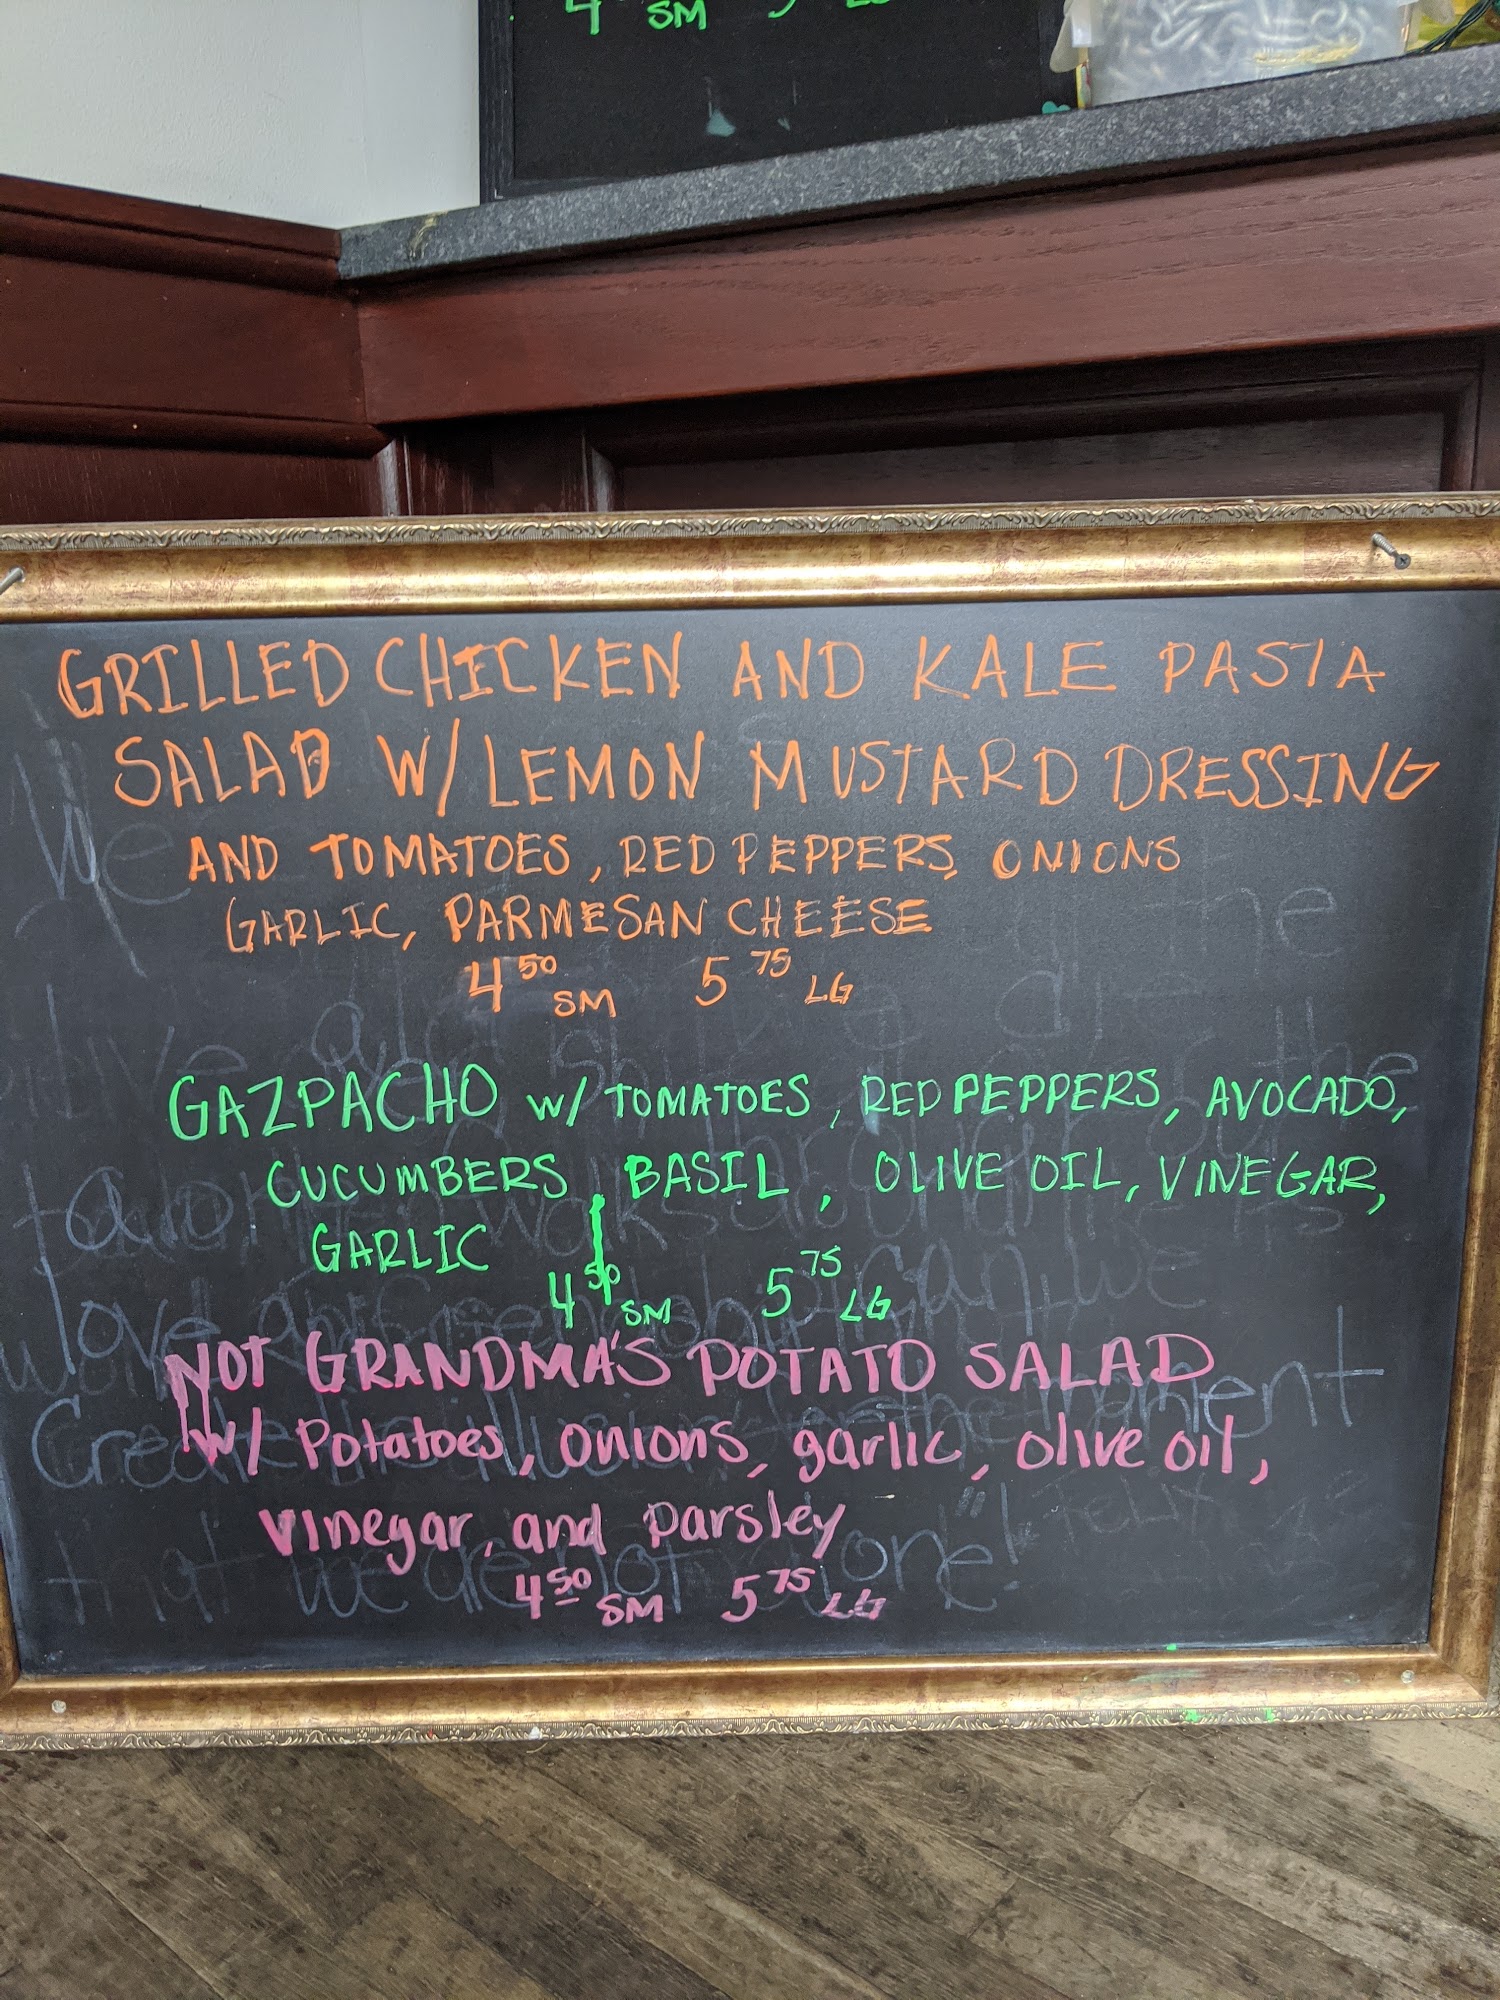 4 SM 5
GRILLED CHICKEN AND KALE PASTA
SALAD W/ LEMON MUSTARD DRESSING
AND TOMATOES, RED PEPPERS, ONIONS
GARLIC, PARMESAN CHEESE
4 50 SM 5 75 LG
GAZPACHO W/ TOMATOES, RED PEPPERS, AVOCADO,
CUCUMBERS, BASIL, OLIVE OIL, VINEGAR,
GARLIC
4 50 SM 5 75 LG
NOT GRANDMA'S POTATO SALAD
W/ Potatoes, onions, garlic, olive oil,
vinegar, and parsley
4 50 SM 5 75 LG